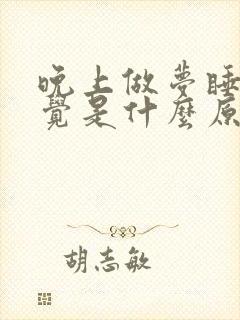 晚上做夢睡
覺是什麼原
胡志敏